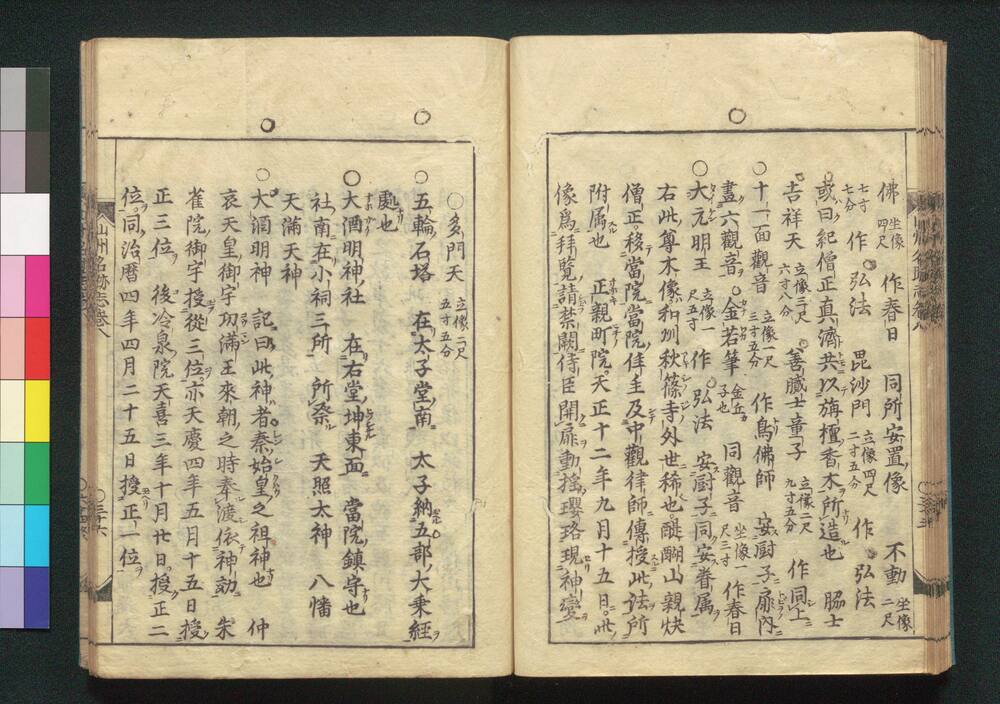 佛 坐像四尺 作春日 同所安置像 不動 坐像二尺
七寸七分 作弘法 毘沙門 立像四尺二寸五分 作弘法
或曰紀僧正真濟共以旃檀香木所造也 脇士
吉祥天 立像三尺六寸八分 善膩士童子 立像二尺九寸五分 作同上
〇十一面觀音 立像一尺三寸五分 作鳥佛師 安厨子扉內
畫六觀音 金若筆 金岳子也 同觀音 坐像一尺三寸 作春日
〇大元明王 立像一尺五寸 作弘法 安厨子同安眷属
右此尊木像和刕秋篠寺外世稀也醍醐山親快
僧正移當院當院住主及中觀律師傳授此法所
附属也 正親町院天正十二年九月十五日此
像爲拜覧請禁闕侍臣開扉動搖瓔珞現神變
〇多門天 立像二尺五寸五分
〇五輪石塔 在太子堂南 太子納五部大乗経
處也
〇大酒明神社 在右堂坤東面 當院鎮守也
社南在小祠三所 所祭 天照太神 八幡
天滿天神
〇大酒明神 記曰此神者秦始皇之祖神也 仲
哀天皇御宇功滿王來朝之時奉渡依神勅 朱
雀院御宇授從三位亦天慶四年五月十五日授
正三位 後冷泉院天喜三年十月廿日授正二
位同治暦四年四月二十五日授正一位
山州名跡志巻八